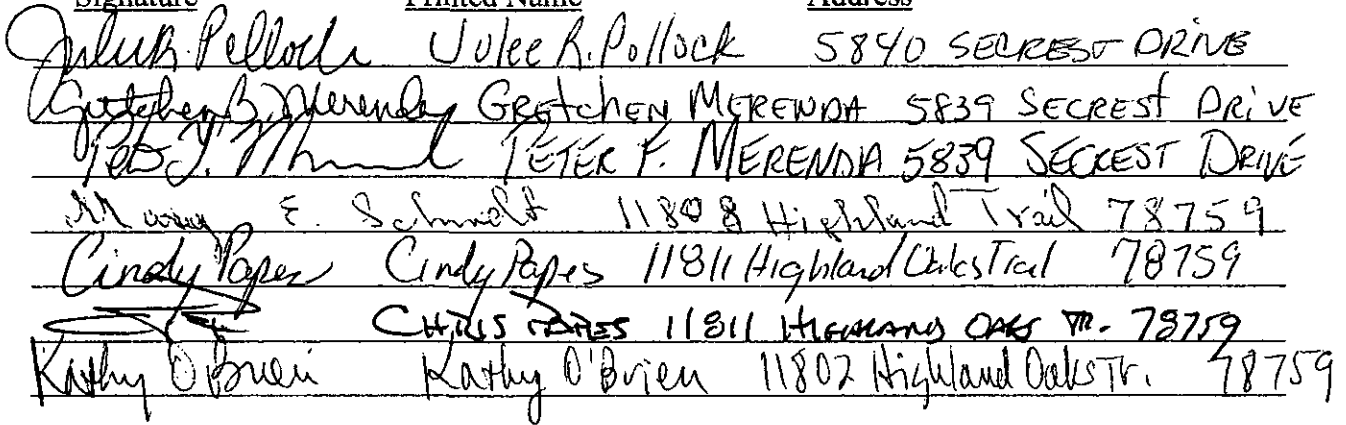 Signature Printed Name Address
Julee R. Pollock Julee R. Pollock 5840 SECREST DRIVE
Gretchen B. Merenda GRETCHEN MERENDA 5839 SECREST DRIVE
PETER F. MERENDA 5839 SECREST DRIVE
Mary E. Schmidt 11808 Highland Trail 78759
Cindy Papes Cindy Papes 11811 Highland Oaks Trail 78759
CHRIS PAPES 11811 HIGHLAND OAKS TR. 78759
Kathy O'Brien Kathy O'Brien 11802 Highland Oaks Tr. 78759